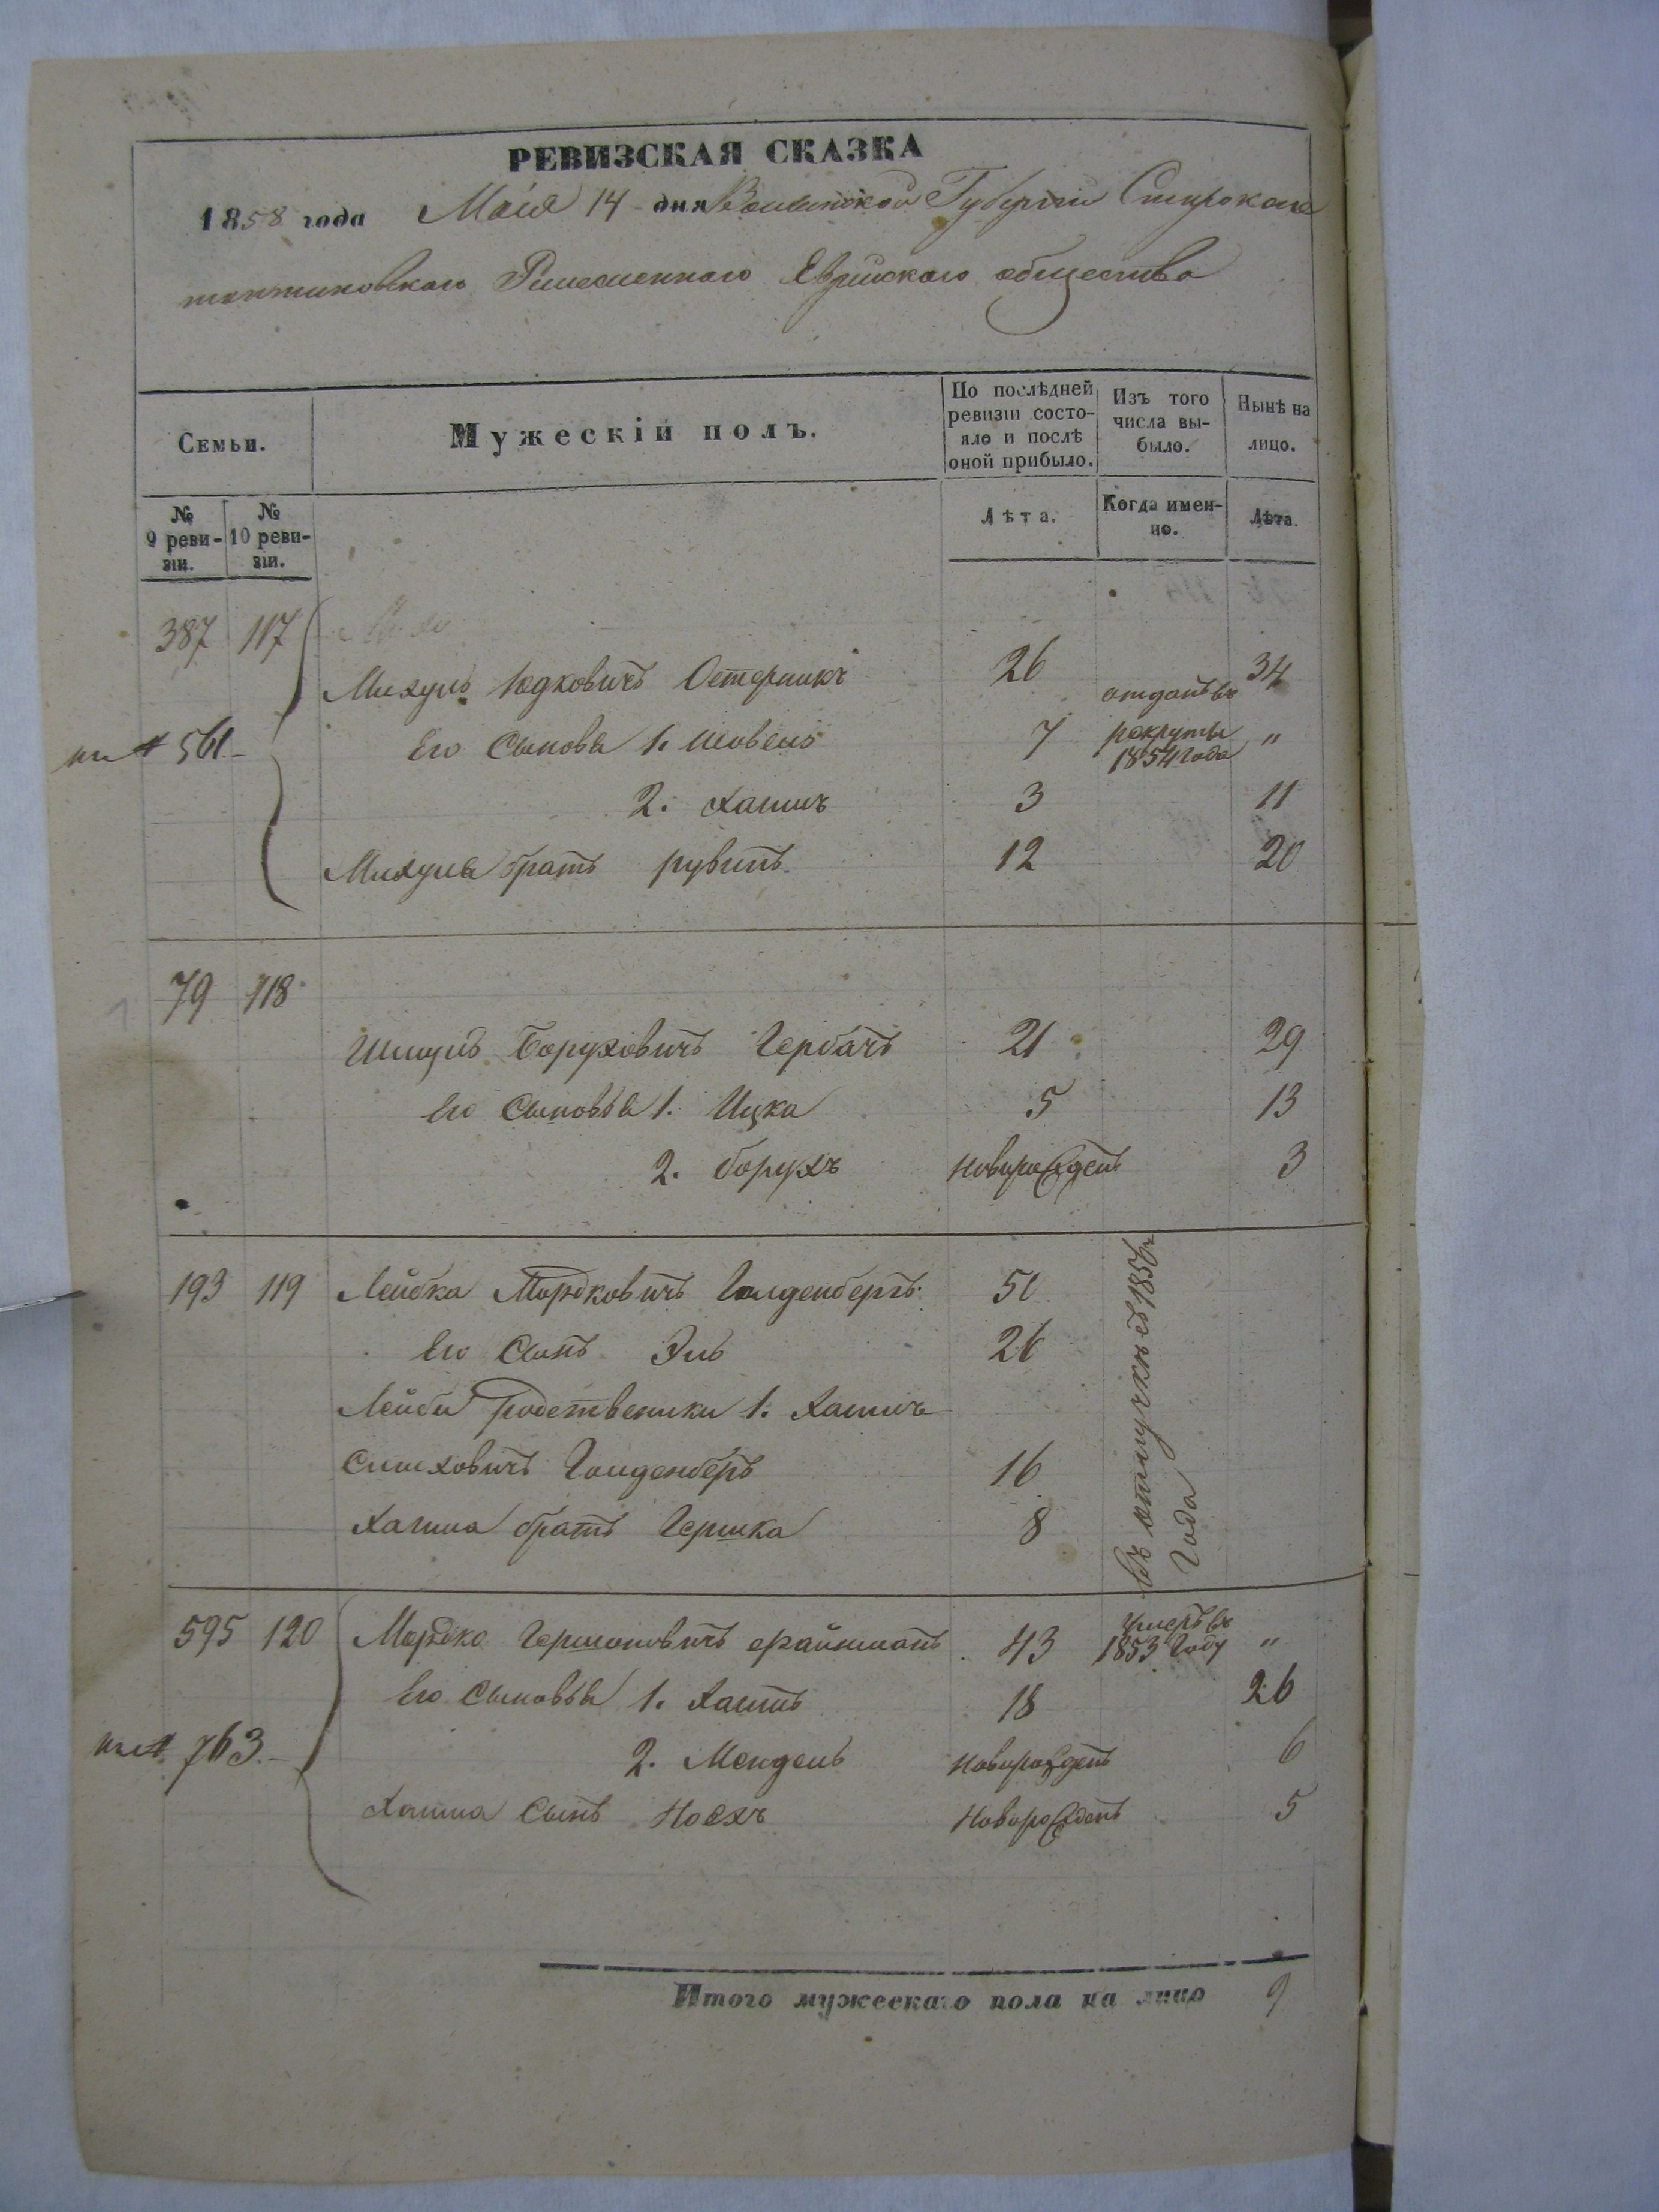 РЕВИЗСКАЯ СКАЗКА
1858 года Маія 14 дня Волынской Губерніи Старокон
стантиновскаго Еврейскаго общества
Семьи.
Мужескій полъ.
По послѣдней ревизіи состояло и послѣ оной прибыло.
Изъ того числа выбыло.
Нынѣ на лицо.
№ 9 ревизіи.
№ 10 ревизіи.
Лѣта.
Когда именно.
Лѣта.
387 117
Михуль Юдковичъ Остерникъ 26 34
561. Его Сыновья 1. Шовель 7 отданъ въ рекруты 1854 года "
2. Хаимъ 3 11
Михуля братъ рувинъ 12 20
79 118
Шмуль Боруховичъ Гербачъ 21 29
Его Сыновья 1. Ицка 5 13
2. борухъ Новорожденъ 3
193 119 Лейбка Мордковичъ Голденбергъ 50
Его Сынъ Эль 26
Лейби родственики 1. Хаимъ
Симховичъ Голденберъ 16
Хаима братъ Гершка 8
въ отлучкѣ съ 185
Года
595 120 Мордко Гершоновичъ файнманъ 43 Умеръ въ 1853 Году "
Его Сыновья 1. Хаимъ 18 26
763. 2. Мендель Новорожденъ 6
Хаима Сынъ Носхъ Новорожденъ 5
Итого мужескаго пола на лицо 9